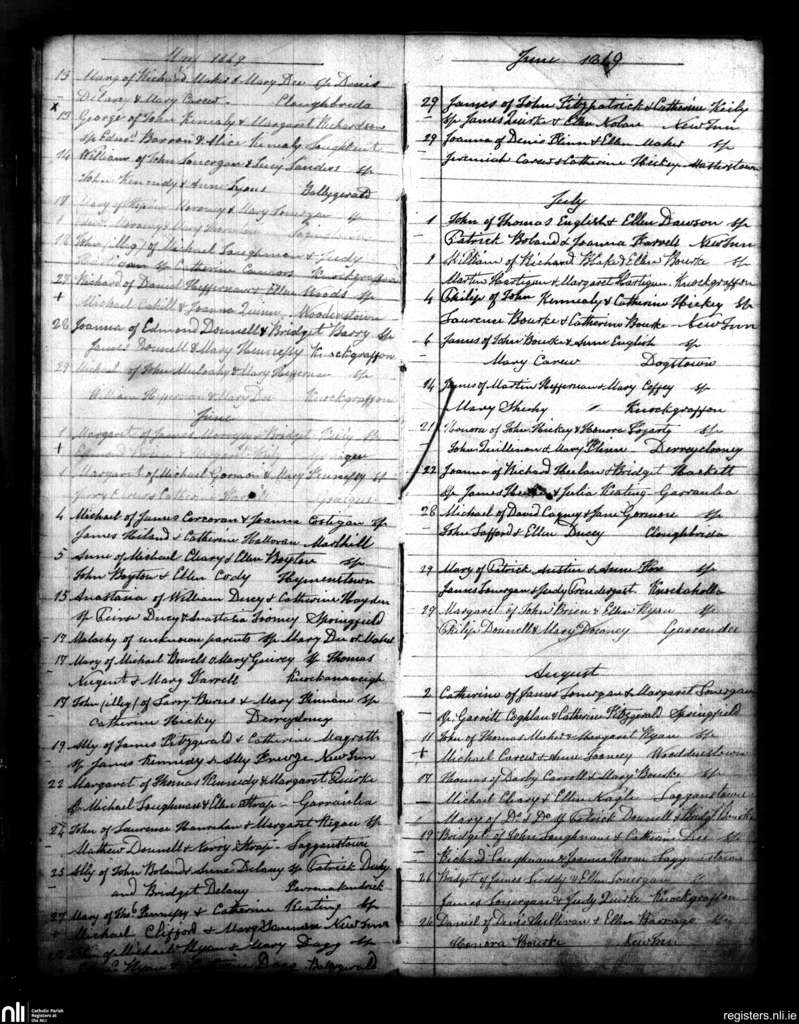 May 1869
13 Mary of Richard Maher & Mary Dee Sp Denis
Delany & Mary Carew - Cloughbreda
x
13 George of John Kenealy & Margaret Richardson
Sp Edmd. Barron & Alice Kenealy
14 William of John Lonergan & Lucy Sanders Sp
John Kennedy & Anne Lyons Ballygerald
18 Mary of Mary Lonergan Sp
18 John (illeg) of Michael Loughman & Judy
Sp Catherine Connors Knockgraffon
27 Richard of Daniel Heffernan & Ellen Woods Sp
+ Michael Cahill & Joanna Quinn, Woodenstown
28 Joanna of Edmond Donnell & Bridget Barry Sp
James Donnell & Mary Hennessy Knockgraffon
29 Michael of John Mulcahy & Mary Heffernan Sp
William Heffernan & Mary Dee Knockgraffon
June
1 Margaret of James & Bridget
+
1 Margaret of Michael Gorman & Mary Hennessy Sp
& Catherine
4 Michael of James Corcoran & Joanna Costigan Sp
James Hiland & Catherine Halloran Marlhill
5 Anne of Michael Cleary & Ellen Boyton Sp
- John Boyton & Ellen Cody Hymenstown
15 Anastasia of William Ducy & Catherine Hayden
Sp Peirse Ducy & Anastasia Toomey Springfield
- 17 Malachy of unknown parents Sp Mary Dee or Maher
17 Mary of Michael Bowels & Mary Guirey Sp Thomas
- Nugent & Mary Farrell Knockanaveigh
17 John (illeg) of Larry Burns & Mary Finnane Sp
- Catherine Hickey Derrycloney
19 Ally of James Fitzgerald & Catherine Magrath
- Sp James Kennedy & Ally New Inn
22 Margaret of Thomas Kennedy & Margaret Quirke
Sp Michael Loughman & Ellen Heap - Garranlea
24 John of Laurence Hanrahan & Margaret Regan Sp
- Mathew Donnell & Norry Heap - Loggenstown
25 Ally of John Boland & Anne Delany Sp Patrick
- and Bridget Delany
27 Mary of Thos. Hennessy & Catherine Keating Sp
+ Michael Clifford & Mary Hannan New Inn
John of Michael Ryan & Mary Dagg Sp
Ryan Dagg Ballygerald
June 1869
29 James of John Fitzpatrick & Catherine Kiely
- Sp James Quirke & Ellen Nolan New Inn
29 Joanna of Denis Flinn & Ellen Maher Sp
- Jeremiah Carew & Catherine Hickey Masterstown
July
1 John of Thomas English & Ellen Dawson Sp
- Patrick Boland & Joanna Farrell New Inn
1 William of Richard Blake & Ellen Bourke Sp
Martin Hartigan & Margaret Hartigan Knockgraffon
4 Philip of John Kennealy & Catherine Hickey Sp
- Laurence Bourke & Catherine Bourke - New Inn
6 James of John Bourke & Anne English Sp
- Mary Carew Dogstown
14 James of Martin Heffernan & Mary Coffey Sp
Mary Sheehy Knockgraffon
21 Honora of John Hickey & Honora Fogarty Sp
John Quillenan & Mary Flinn Derrycloney
22 Joanna of Richard Phelan & Bridget Hackett
Sp James & Julia Keating - Garranlea
28 Michael of David Cagney & Jane Gorman Sp
- John Lafford & Ellen Ducey Cloughbrida
29 Mary of Patrick Austin & Anne Sp
- James Lonergan & Judy Prendergast Knockaholla
29 Margaret of John Brien & Ellen Ryan Sp
Philip Donnell & Mary Garrandee
August
2 Catherine of James Lonergan & Margaret Lonergan
- Sp Garrett Coghlan & Catherine Fitzgerald Springfield
11 John of Thomas Maher & Margaret Ryan Sp
+ Michael Carew & Anne Looney Woodenstown
17 Thomas of Darby Carroll & Mary Bourke Sp
- Michael Cleary & Ellen Nagle Lagganstown
Mary of Do. & Do. Sp Patrick Donnell & Bridget Bourke
19 Bridget of John Loughnane & Catherine Dee Sp
Richard Loughnane & Joanna Horan Lagganstown
26 Bridget of James Luddy & Ellen Lonergan
James Lonergan & Judy Quirke Knockgraffon
26 Daniel of Denis Sullivan & Ellen Sp
Honora Bourke New Inn
nli
Catholic Parish
Registers at
the NLI
registers.nli.ie